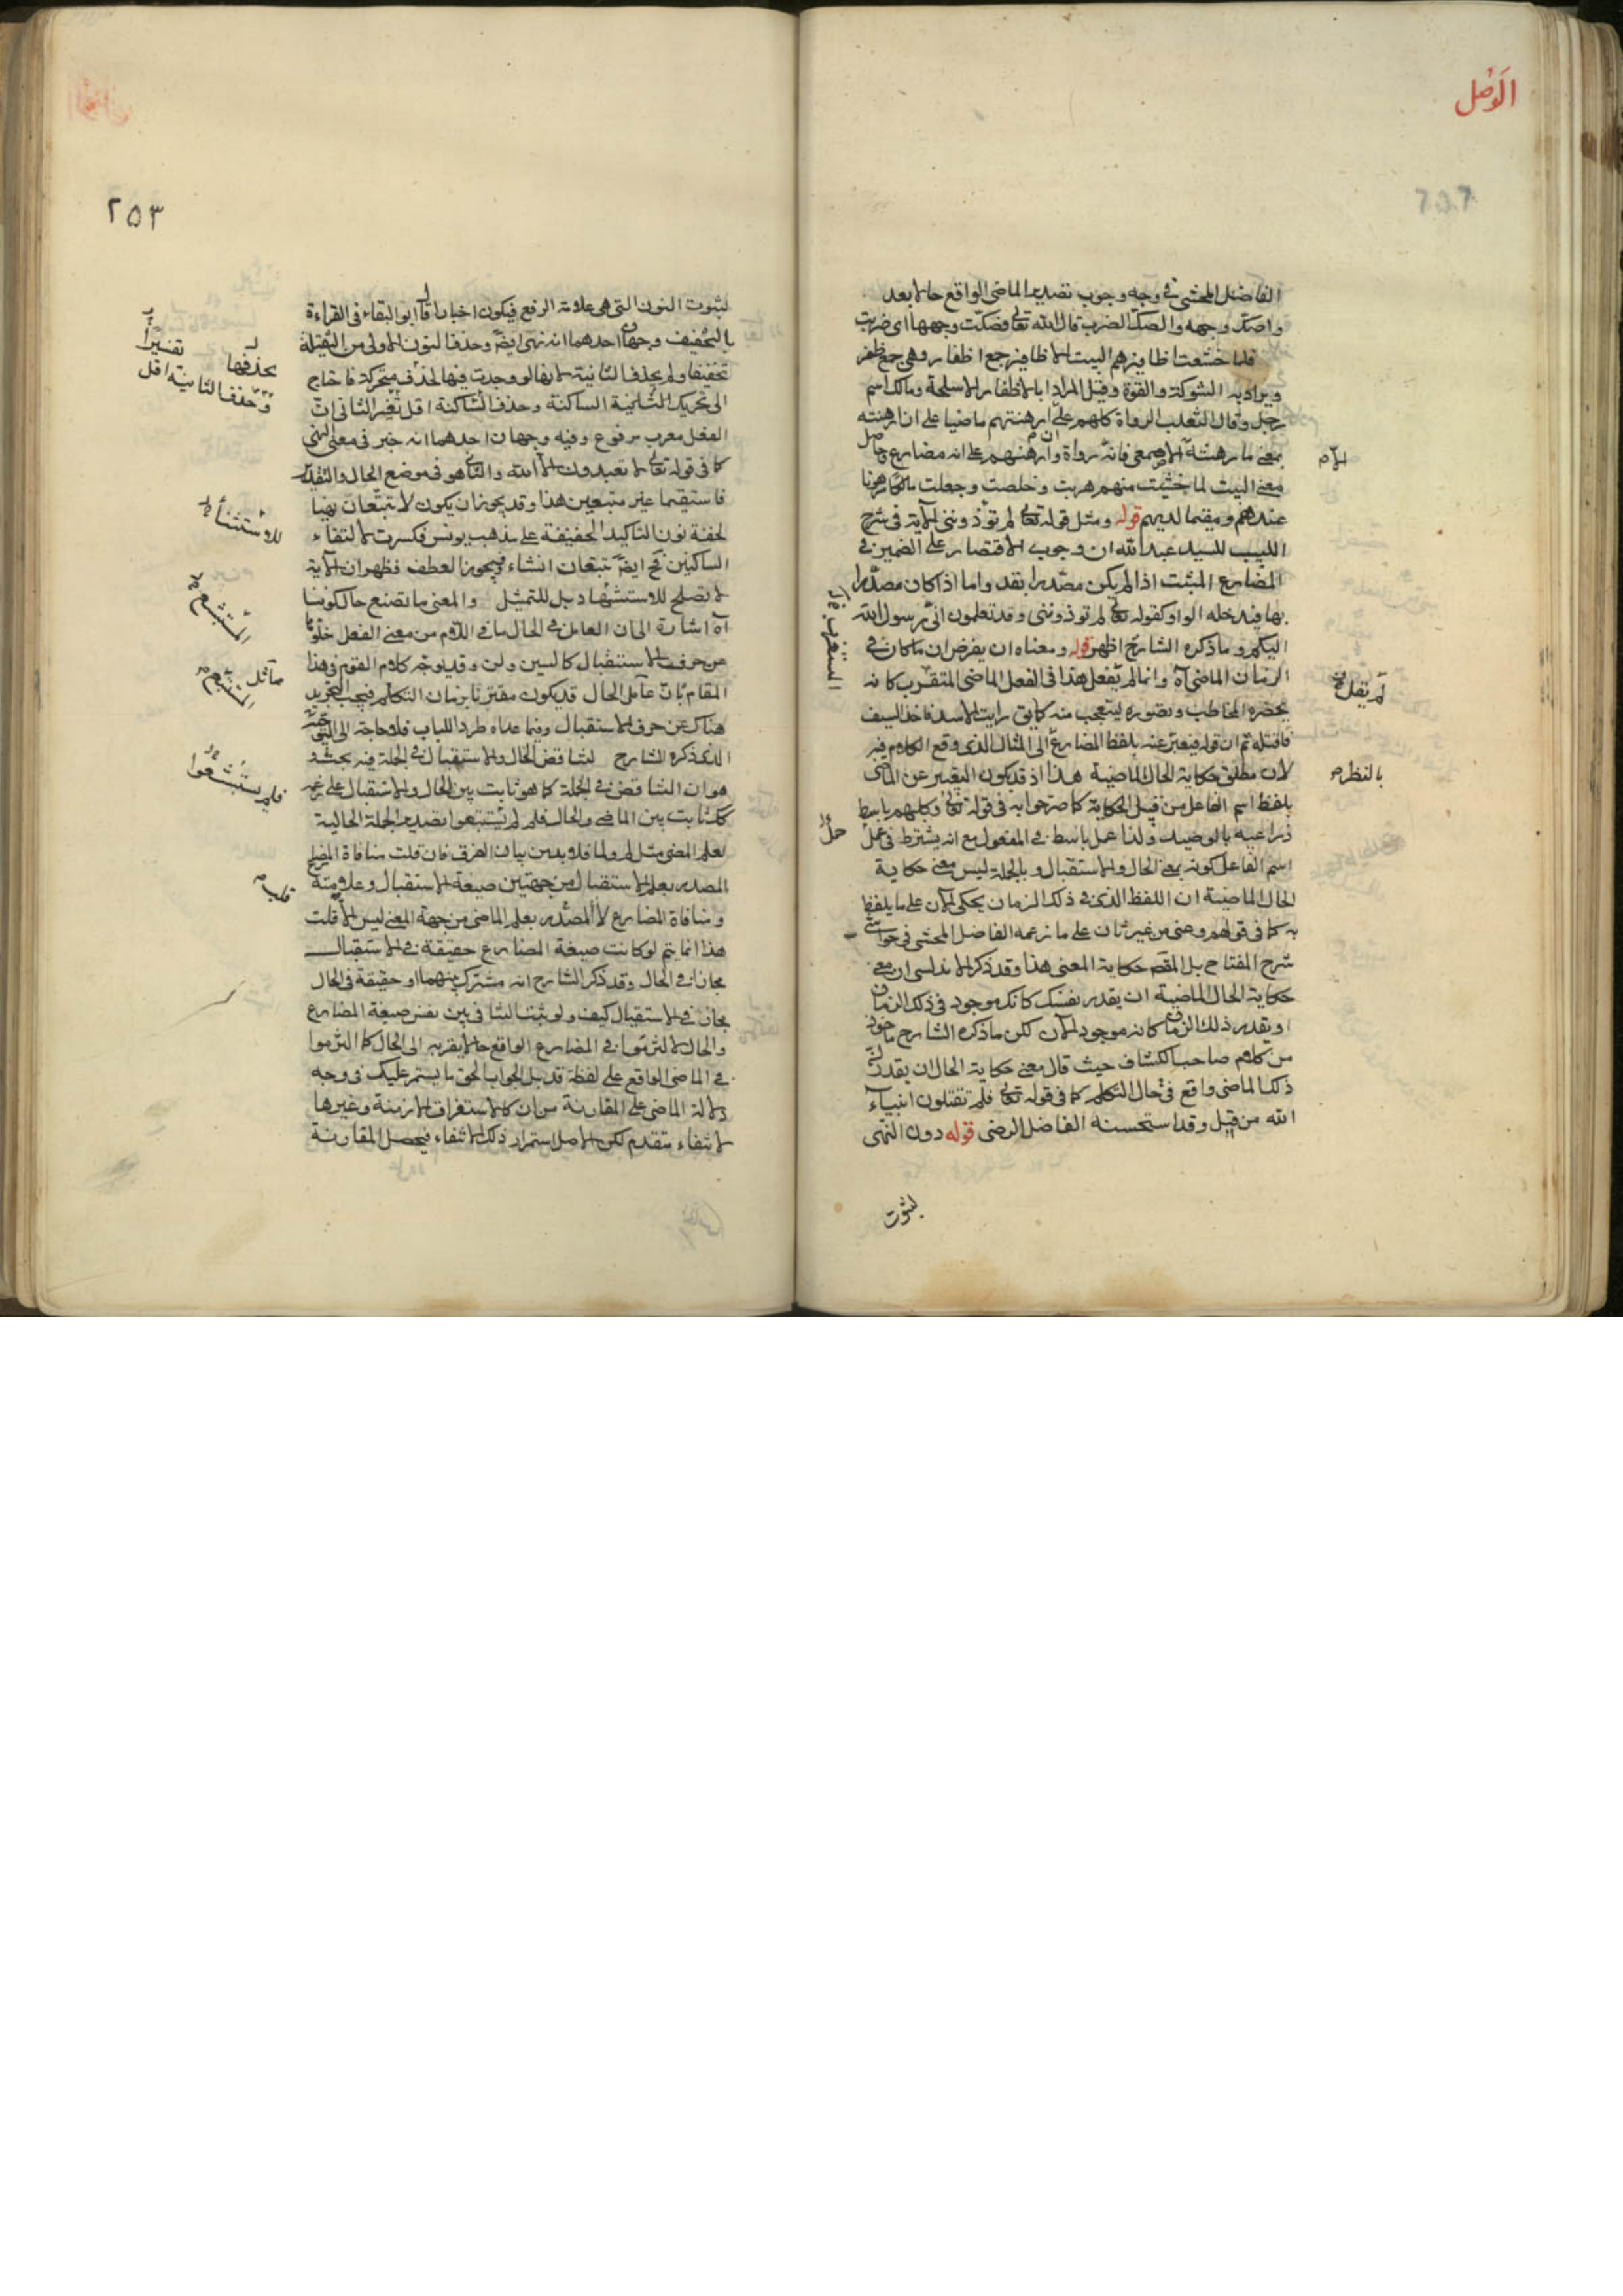 الوصل
الفاضل المحشي في وجه وجوب تصدير الماضي الواقع حالا بعد
واصك وجهه والصك الضرب قال الله تعالى فصكت وجهها اي ضربت
فلما خشيت اظافيرهم البيت الاظافير جمع اظفار وهي جمع ظفر
ويراد به الشوكة والقوة وقيل المراد بالاظفار الاسلحة ومالك اسم
رجل وقال الثعلب الرواة كلهم على ارهنتهم ماضيا على ان ارهنته
بمعنى رهنته الا الاصمعي فانه رواه وارهنهم على انه مضارع
معنى البيت لما خشيت منهم هربت وخلصت وجعلت مالكا مرهونا
عندهم ومقيما لديهم قوله ومثل قوله تعالى لم تؤذونني الآية في شرح
اللبيب للسيد عبد الله ان وجوب الاقتصار على الضمير في
المضارع المثبت اذا لم يكن مصدرا بقد واما اذا كان مصدرا
بها فيدخله الواو كقوله تعالى لم تؤذونني وقد تعلمون اني رسول الله
اليكم وما ذكره الشارح اظهر قوله ومعناه ان يفرض ان ما كان في
الزمان الماضي آه وانما لم يفعل هذا في الفعل الماضي المتقرب كانه
يحضره المخاطب وتصوره ليتعجب منه كما يق رايت الاسد فاخذ السيف
فاقتله ثم ان قوله فيعبر عنه بلفظ المضارع الى المثال الذي وقع الكلام فيه
لان مطلق حكاية الحال الماضية هذا اذ قد يكون التعبير عن الماضي
بلفظ اسم الفاعل من قبيل الحكاية كما صرحوا به في قوله تعالى وكلبهم باسط
ذراعيه بالوصيد ولذا عمل باسط في المفعول مع انه يشترط في عمل
اسم الفاعل كونه بمعنى الحال والاستقبال وبالجملة ليس معنى حكاية
الحال الماضية ان اللفظ الذي في ذلك الزمان يحكى الآن على ما يلفظ
به كما في قولهم دعني من غيرتان على ما زعمه الفاضل المحشي في حواشي
شرح المفتاح بل المقصد حكاية المعنى هذا وقد ذكر الاندلسي ان معنى
حكاية الحال الماضية ان يقدر نفسك كانك موجود في ذلك الزمان
او يقدر ذلك الزمان كانه موجود الآن لكن ما ذكره الشارح ماخوذ
من كلام صاحب الكشاف حيث قال معنى حكاية الحال ان يقدر ان
ذلك الماضي واقع في حال التكلم كما في قوله تعالى فلم تقتلون انبياء
الله من قبل وقد استحسنه الفاضل الرضي قوله دون النهي
لثبوت
لم يقل
بالنظر م
٢٥٣
لثبوت النون التي هي علامة الرفع فيكون اخبارا قال ابو البقاء في القراءة
بالتخفيف وجهان احدهما انه نهي ايضا وحذف النون الاولى من الثقيلة
تخفيفا ولم يحذف الثانية لانها لو وجدت فيها لحذف متحركة فاحتاج
الى تحريك الثانية الساكنة وحذف الساكنة اقل تغير الثاني ان
الفعل معرب مرفوع وفيه وجهان احدهما انه خبر في معنى النهي
كما في قوله تعالى لا تعبدون الا الله والثاني هو في موضع الحال والتقدير
فاستقيما غير متبعين هذا وقد يجوز ان يكون لا تتبعان نهيا
لحقه نون التاكيد الخفيفة على مذهب يونس فكسرت لالتقاء
الساكنين فح ايضا تتبعان انشاء فيجوز العطف فظهر ان الآية
لا تصلح للاستشهاد بل للتمثيل والمعنى ما تصنع حال كونها
آه اشارة الى ان العامل في الحال ما في اللام من معنى الفعل خلوها
عن حرف الاستقبال كالسين ولن وقد يوجه كلام القوم في هذا
المقام بان عامل الحال قد يكون مقترنا بزمان التكلم فيجب التجريد
هناك عن حرف الاستقبال وفيما عداه طردا للباب فلا حاجة الى
الذي ذكره الشارح لتناقض الحال والاستقبال في الجملة فيه بحث
هو ان التناقض في الجملة كما هو ثابت بين الحال والاستقبال على
كك ثابت بين الماضي والحال فلم لم يستبشعوا تصدير الجملة الحالية
بعلم المضي مثل لم ولما فلا بد من بيان الفرق فان قلت منافاة المضارع
المصدر بعلم الاستقبال من جهتين صيغة الاستقبال وعلامته
ومنافاة المضارع المصدر بعلم الماضي من جهة المعنى ليس الا قلت
هذا انما يتم لو كانت صيغة المضارع حقيقة في الاستقبال
مجازا في الحال وقد ذكر الشارح انه مشترك بينهما او حقيقة في الحال
مجاز في الاستقبال كيف ولو ثبت التنافي بين نفس صيغة المضارع
والحال لالتزموا في المضارع الواقع حالا بقربه الى الحال كما التزموا
في الماضي الواقع على لفظة قد بل الجواب الحق ما يستمر عليك في وجه
دلالة الماضي على المقارنة من ان كالاستغراق الازمنة وغيرها
لانتفاء متقدم لكن الاصل استمرار ذلك الانتفاء فيحصل المقارنة
بحذفها تغييرا
وحذف الثانية اقل
فلم يستبشعوا